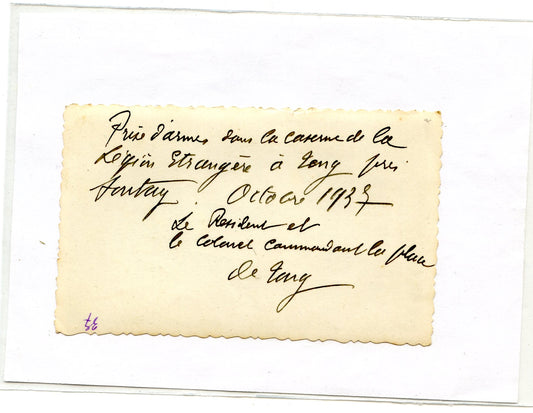 Prise d'armes dans la caserne de la
Légion Etrangère à Tong près
Sontay. Octobre 1937
Le Resident et
le Colonel commandant la place
de Tong